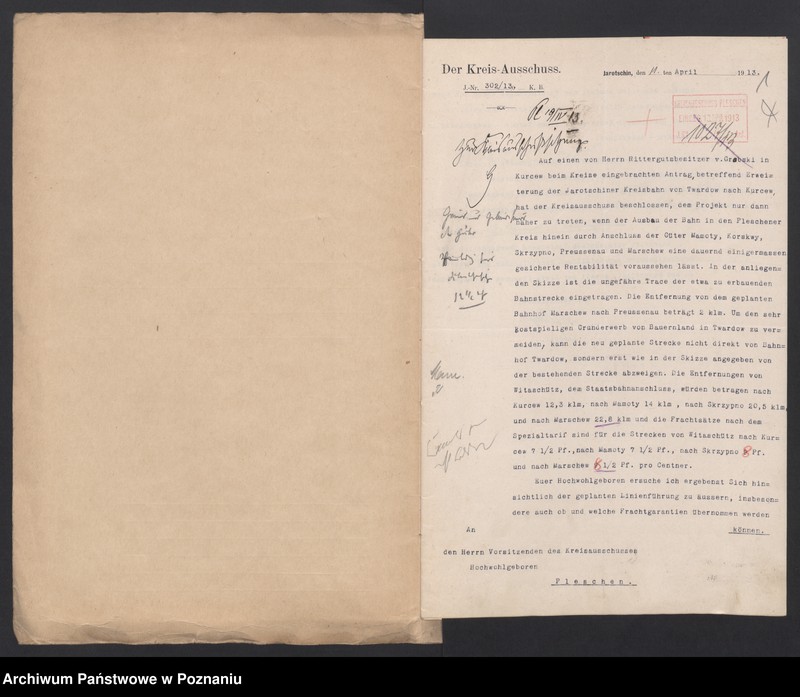 Der Kreis-Ausschuss.
J.-Nr. 302/13. K. B.
Jarotschin, den 11. ten April 1913.
Pl 19/IV 13.
1027/13
Zur Kreisausschußsitzung.
Auf einen von Herrn Rittergutsbesitzer v. Grabski in
Kurcew beim Kreise eingebrachten Antrag, betreffend Erwei
terung der Jarotschiner Kreisbahn von Twardow nach Kurcew,
hat der Kreisausschuss beschlossen, dem Projekt nur dann
näher zu treten, wenn der Ausbau der Bahn in den Pleschener
Kreis hinein durch Anschluss der Güter Mamoty, Korzkwy,
Skrzypno, Preussenau und Marschew eine dauernd einigermassen
gesicherte Rentabilität voraussehen lässt. In der anliegen
den Skizze ist die ungefähre Trace der etwa zu erbauenden
Bahnstrecke eingetragen. Die Entfernung von dem geplanten
Bahnhof Marschew nach Preussenau beträgt 2 klm. Um den sehr
kostspieligen Grunderwerb von Bauernland in Twardow zu verm
meiden, kann die neu geplante Strecke nicht direkt von Bahn
hof Twardow, sondern erst wie in der Skizze angegeben von
der bestehenden Strecke abzweigen. Die Entfernungen von
Witaschütz, dem Staatsbahnanschluss, würden betragen nach
Kurcew 12,3 klm, nach Mamoty 14 klm , nach Skrzypno 20,5 klm,
und nach Marschew 22,6 klm und die Frachtsätze nach dem
Spezialtarif sind für die Strecken von Witaschütz nach Kur
cew 7 1/2 Pf., nach Mamoty 7 1/2 Pf., nach Skrzypno 8 Pf.
und nach Marschew 8 1/2 Pf. pro Centner.
Euer Hochwohlgeboren ersuche ich ergebenst Sich hin
sichtlich der geplanten Linienführung zu äussern, insbeson
dere auch ob und welche Frachtgarantien übernommen werden
können.
An
den Herrn Vorsitzenden des Kreisausschusses
Hochwohlgeboren
Pleschen.
Archiwum Państwowe w Poznaniu